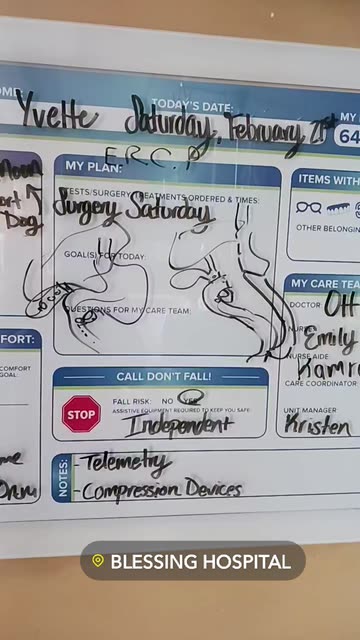 OME:
TODAY'S DATE:
MY
Yvette
Saturday, February 21st
64
E.R.C.P
Moon
art
Dog
MY PLAN:
TESTS/SURGERY/TREATMENTS ORDERED & TIMES:
Surgery Saturday
GOAL(S) FOR TODAY:
QUESTIONS FOR MY CARE TEAM:
ITEMS WITH
OTHER BELONGIN
MY CARE TEA
DOCTOR
Ott
NURSE
Emily
NURSE AIDE
Kamr
CARE COORDINATOR
UNIT MANAGER
Kristen
FORT:
COMFORT
GOAL:
CALL DON'T FALL!
STOP
FALL RISK: NO YES
ASSISTIVE EQUIPMENT REQUIRED TO KEEP YOU SAFE:
Independent
me
NOTES:
- Telemetry
- Compression Devices
BLESSING HOSPITAL